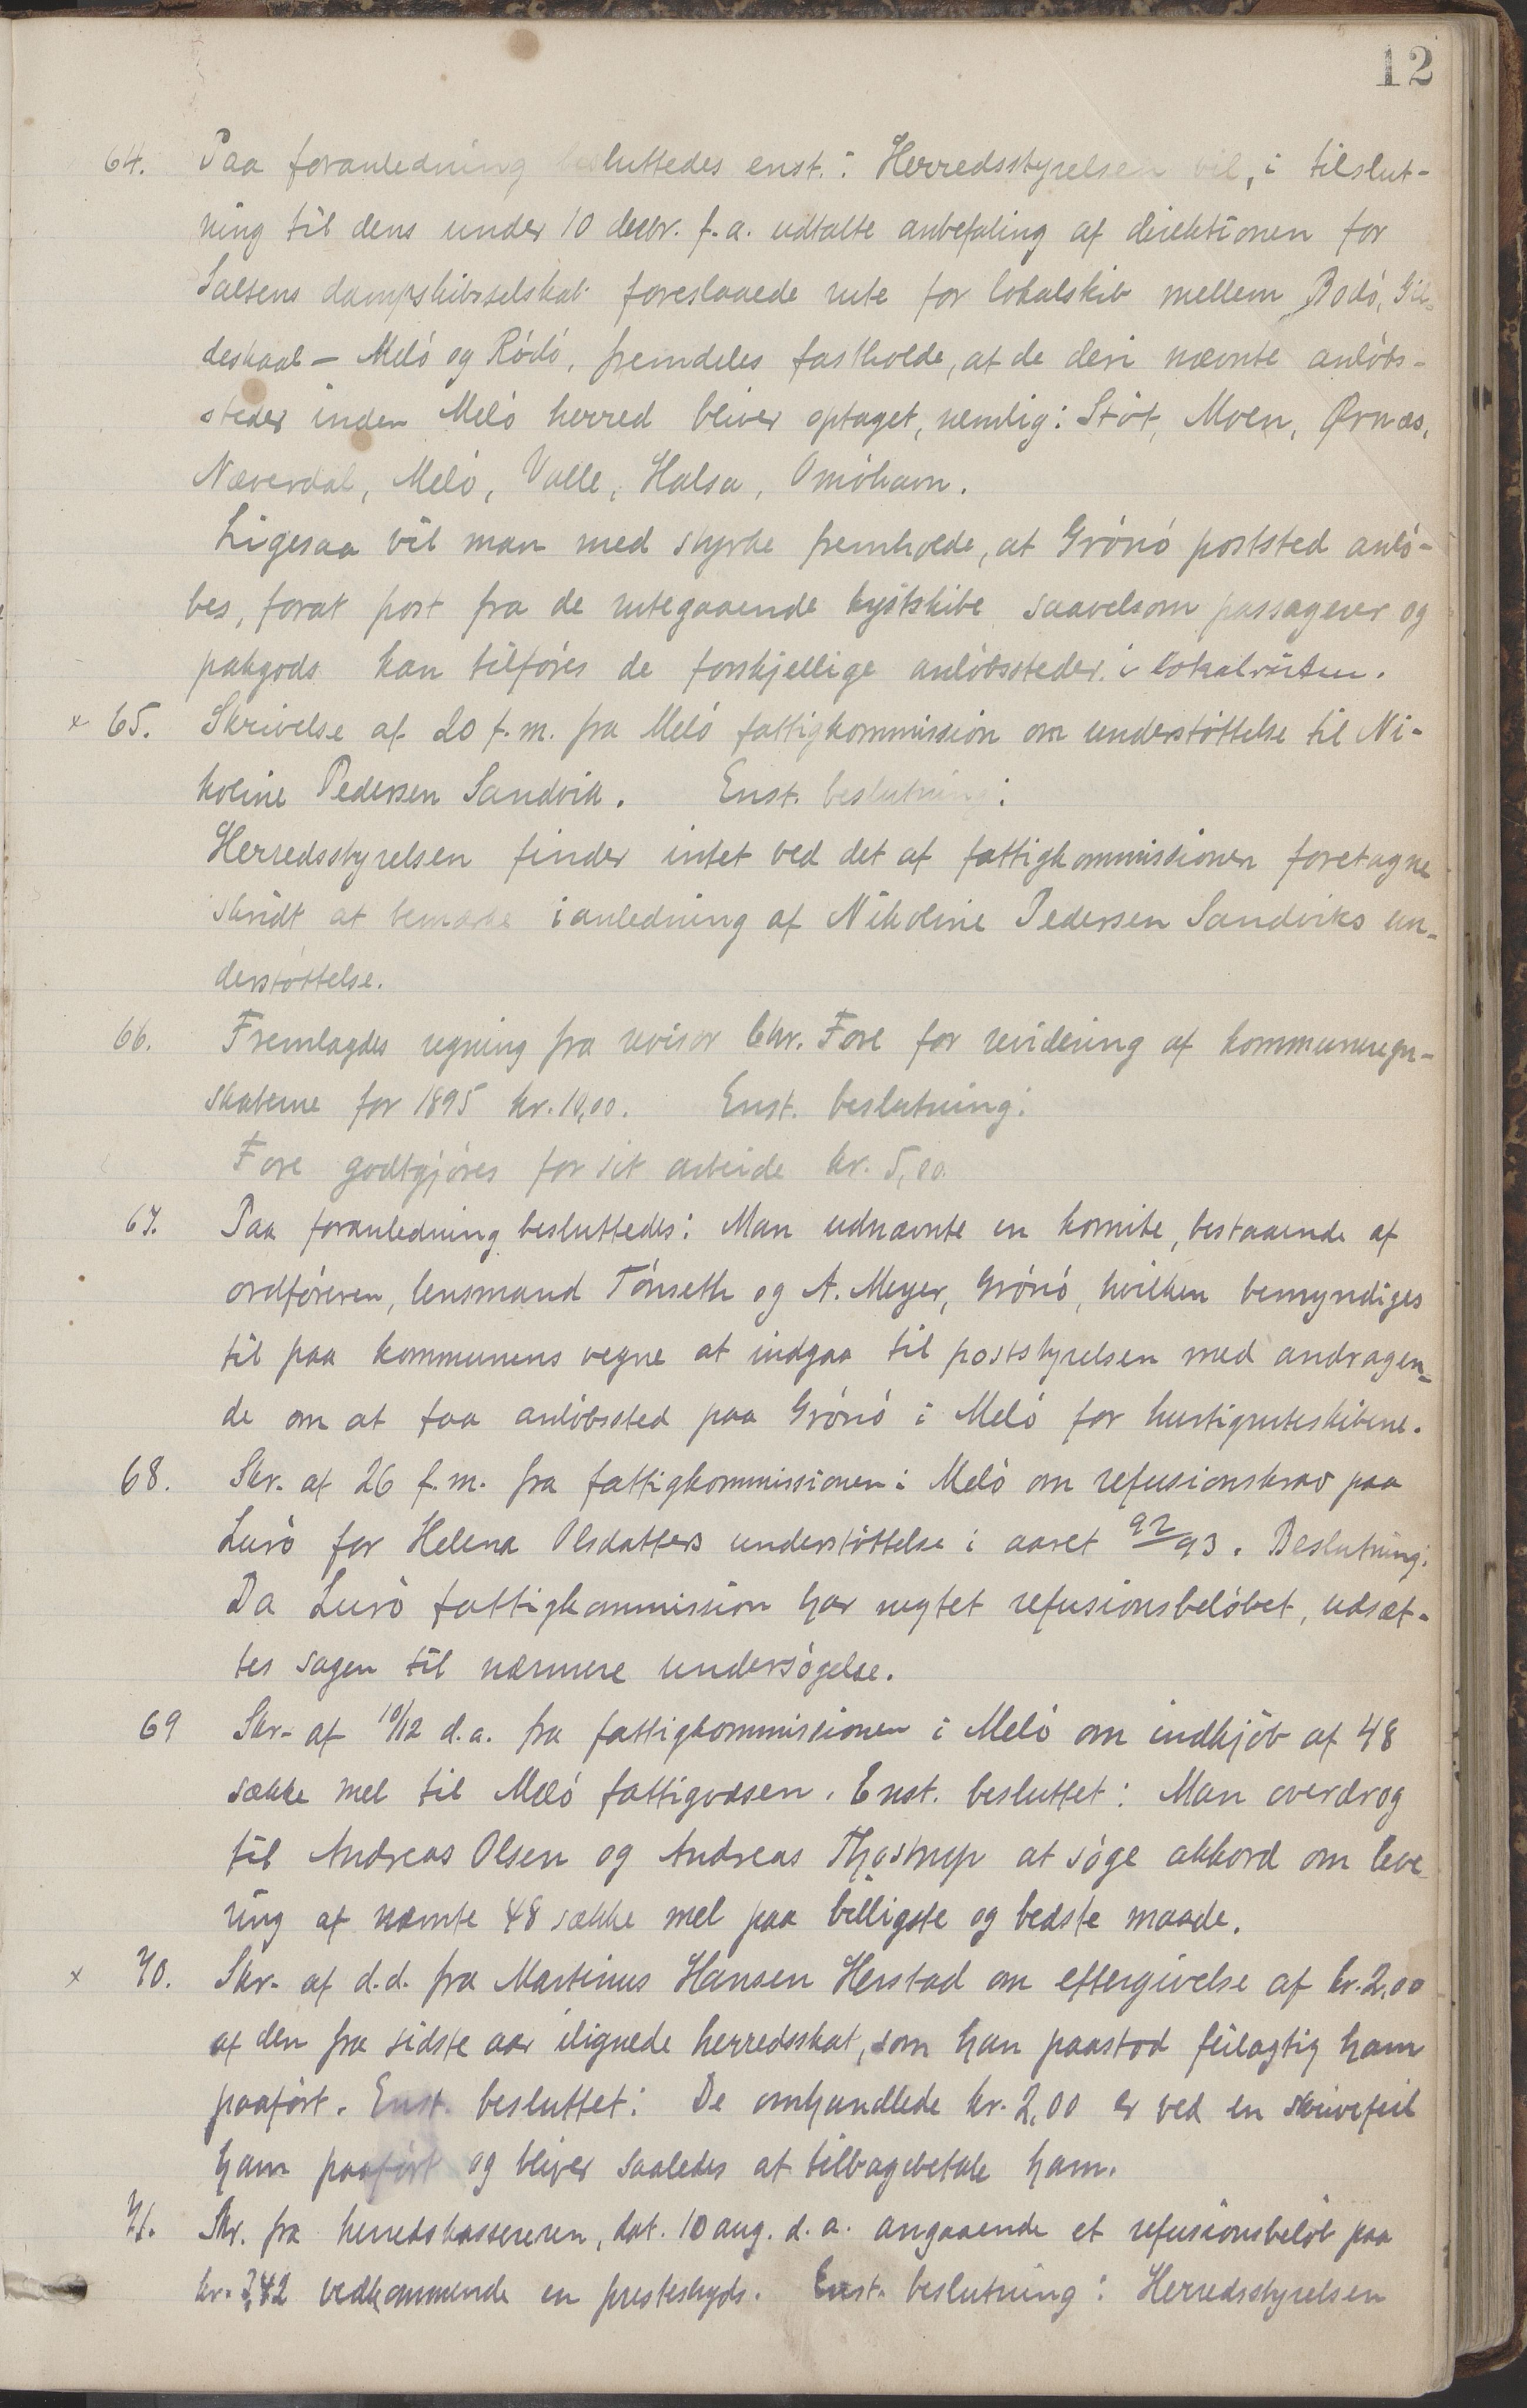 12
64. Paa foranledning besluttedes enst.: Herredsstyrelsen vil, i tilslut-
ning til dens under 10 decbr. f.a. udtalte anbefaling af direktionen for
Saltens dampskibsselskab foreslaaede rute for lokalskib mellem Bodó, Gil-
deskaal – Meló og Ródó, fremdeles fastholde, at de deri nævnte anlóbs-
steder inden Meló herred bliver optaget, nemlig: Stót, Moen, Ørnæs,
Næverdal, Meló, Valle, Halsa, Omóhavn.
Ligesaa vil man med styrke fremholde, at Grónó poststed anló-
bes, forat post fra de rutegaaende kystskibe saavelsom passagerer og
pakgods kan tilfóres de forskjellige anlóbssteder i lokalruten.
x 65. Skrivelse af 20 f.m. fra Meló fattigkommission om understóttelse til Ni-
koline Pedersen Sandvik. Enst. beslutning:
Herredsstyrelsen finder intet ved det af fattigkommissionen foretagne
skridt at bemærke i anledning af Nikoline Pedersen Sandviks un-
derstóttelse.
66. Fremlagdes regning fra revisor Chr. Fore for revidering af kommuneregn-
skaberne for 1895 kr. 10,00. Enst. beslutning:
Fore godtgjóres for sit arbeide kr. 5,00.
67. Paa foranledning besluttedes: Man udnævnte en komite, bestaaende af
ordfóreren, lensmand Tónseth og A. Meyer, Grónó, hvilken bemyndiges
til paa kommunens vegne at indgaa til poststyrelsen med andragen-
de om at faa anlóbssted paa Grónó i Meló for hurtigruteskibene.
68. Skr. af 26 f.m. fra fattigkommissionen i Meló om refusionskrav paa
Luró for Helena Olsdatters understóttelse i aaret 92/93. Beslutning:
Da Luró fattigkommission har negtet refusionsbelóbet, udsæt-
tes sagen til nærmere undersógelse.
69 Skr. af 10/12 d.a. fra fattigkommissionen i Meló om indkjób af 48
sække mel til Meló fattigvæsen. Enst. besluttet: Man overdrog
til Andreas Olsen og Andreas Thostrup at sóge akkord om leve
ring af nævnte 48 sække mel paa billigste og bedste maade.
x 70. Skr. af d.d. fra Martinus Hansen Herstad om eftergivelse af kr. 2,00
af den fra sidste aar ilignede herredsskat, som han paastod feilagtig ham
paafórt. Enst. besluttet: De omhandlede kr. 2,00 er ved en skrivefeil
ham paafórt og bliver saaledes at tilbagebetale ham.
71. Skr. fra herredskassereren, dat. 10 aug. d.a. angaaende et refusionsbelób paa
kr. 7,42 vedkommende en presteskyds. Enst. beslutning: Herredsstyrelsen